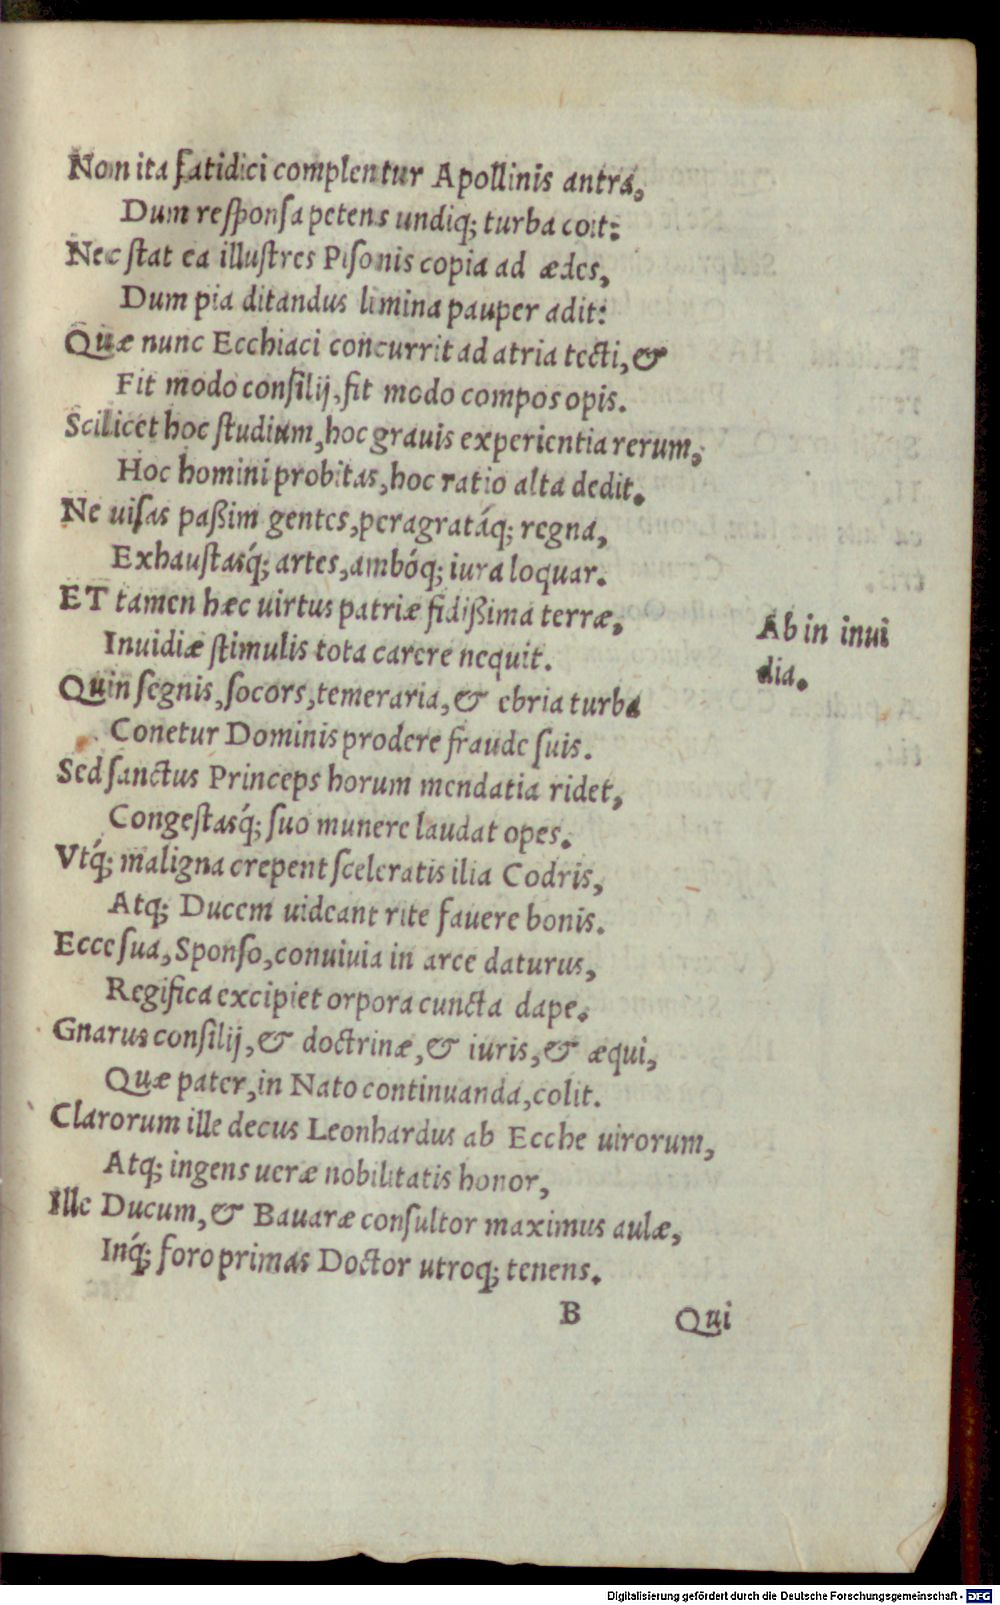 Non ita fatidici complentur Apollinis antra,
Dum reſponſa petens undiq; turba coit:
Nec ſtat ea illuſtres Piſonis copia ad ædes,
Dum pia ditandus limina pauper adit:
Quæ nunc Ecchiaci concurrit ad atria tecti, &
Fit modo conſilij, fit modo compos opis.
Scilicet hoc ſtudium, hoc grauis experientia rerum,
Hoc homini probitas, hoc ratio alta dedit.
Ne uiſas paßim gentes, peragratáq; regna,
Exhauſtasq́; artes, ambóq; iura loquar.
ET tamen hæc uirtus patriæ fidißima terræ,
Ab in inui
Inuidiæ ſtimulis tota carere nequit.
dia.
Quin ſegnis, ſocors, temeraria, & ebria turba
Conetur Dominis prodere fraude ſuis.
Sed ſanctus Princeps horum mendatia ridet,
Congeſtasq́; ſuo munere laudat opes.
Vtq́; maligna crepent ſceleratis ilia Codris,
Atq; Ducem uideant rite fauere bonis.
Ecce ſua, Sponſo, conuiuia in arce daturus,
Regifica excipiet orpora cuncta dape.
Gnarus conſilij, & doctrinæ, & iuris, & æqui,
Quæ pater, in Nato continuanda, colit.
Clarorum ille decus Leonhardus ab Ecche uirorum,
Atq; ingens ueræ nobilitatis honor,
Ille Ducum, & Bauaræ conſultor maximus aulæ,
Inq́; foro primas Doctor utroq; tenens.
B Qui
Digitalisierung gefördert durch die Deutsche Forschungsgemeinschaft - DFG